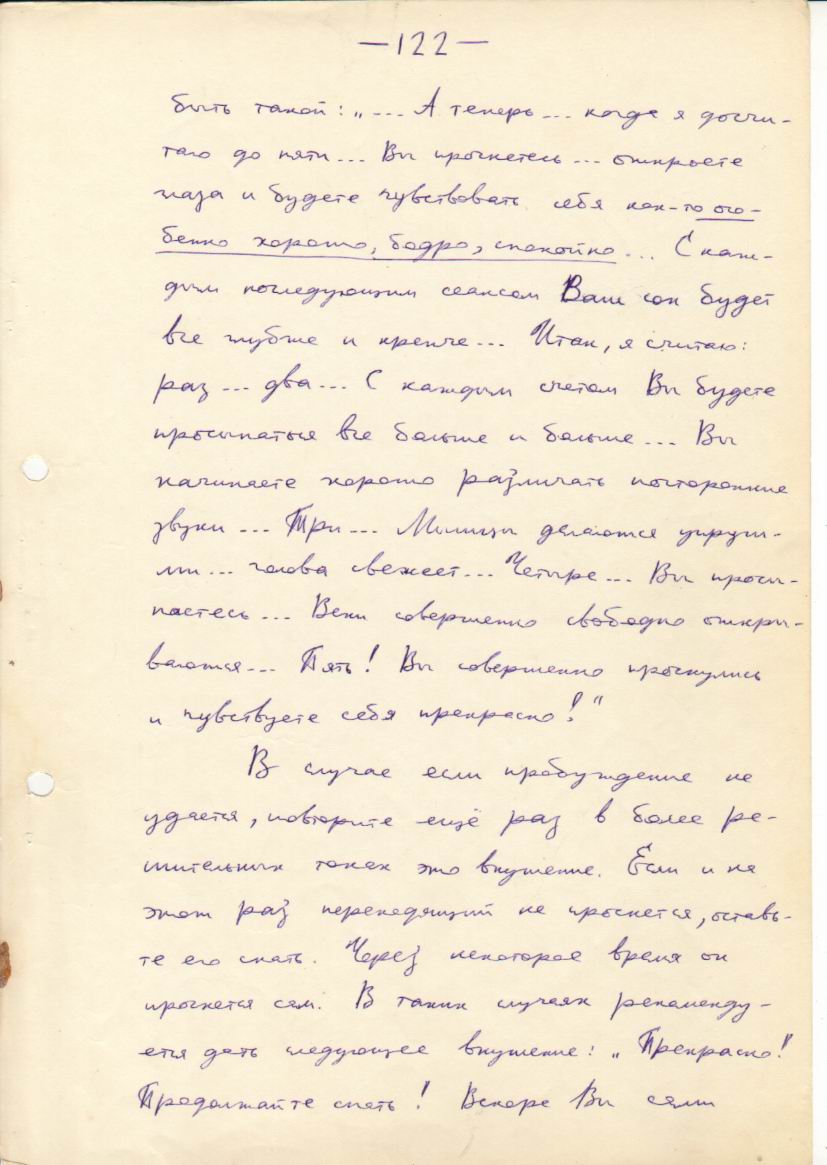 —122—
быть такой: „... А теперь... когда я досчи-
таю до пяти... Вы проснетесь... откроете
глаза и будете чувствовать себя как-то осо-
бенно хорошо, бодро, спокойно... С каж-
дым последующим сеансом Ваш сон будет
все глубже и крепче... Итак, я считаю:
раз... два... С каждым счетом Вы будете
просыпаться все больше и больше... Вы
начинаете хорошо различать посторонние
звуки... Три... Мышцы делаются упруги-
ми... голова свежеет... Четыре... Вы просы-
паетесь... Веки совершенно свободно откры-
ваются... Пять! Вы совершенно проснулись
и чувствуете себя прекрасно!"
В случае если пробуждение не
удается, повторите ещё раз в более ре-
шительных тонах это внушение. Если и на
этот раз
не проснется, оставь-
те его спать. Через некоторое время он
проснется сам. В таких случаях рекоменду-
ется дать следующее внушение: „Прекрасно!
Продолжайте спать! Вскоре Вы сами